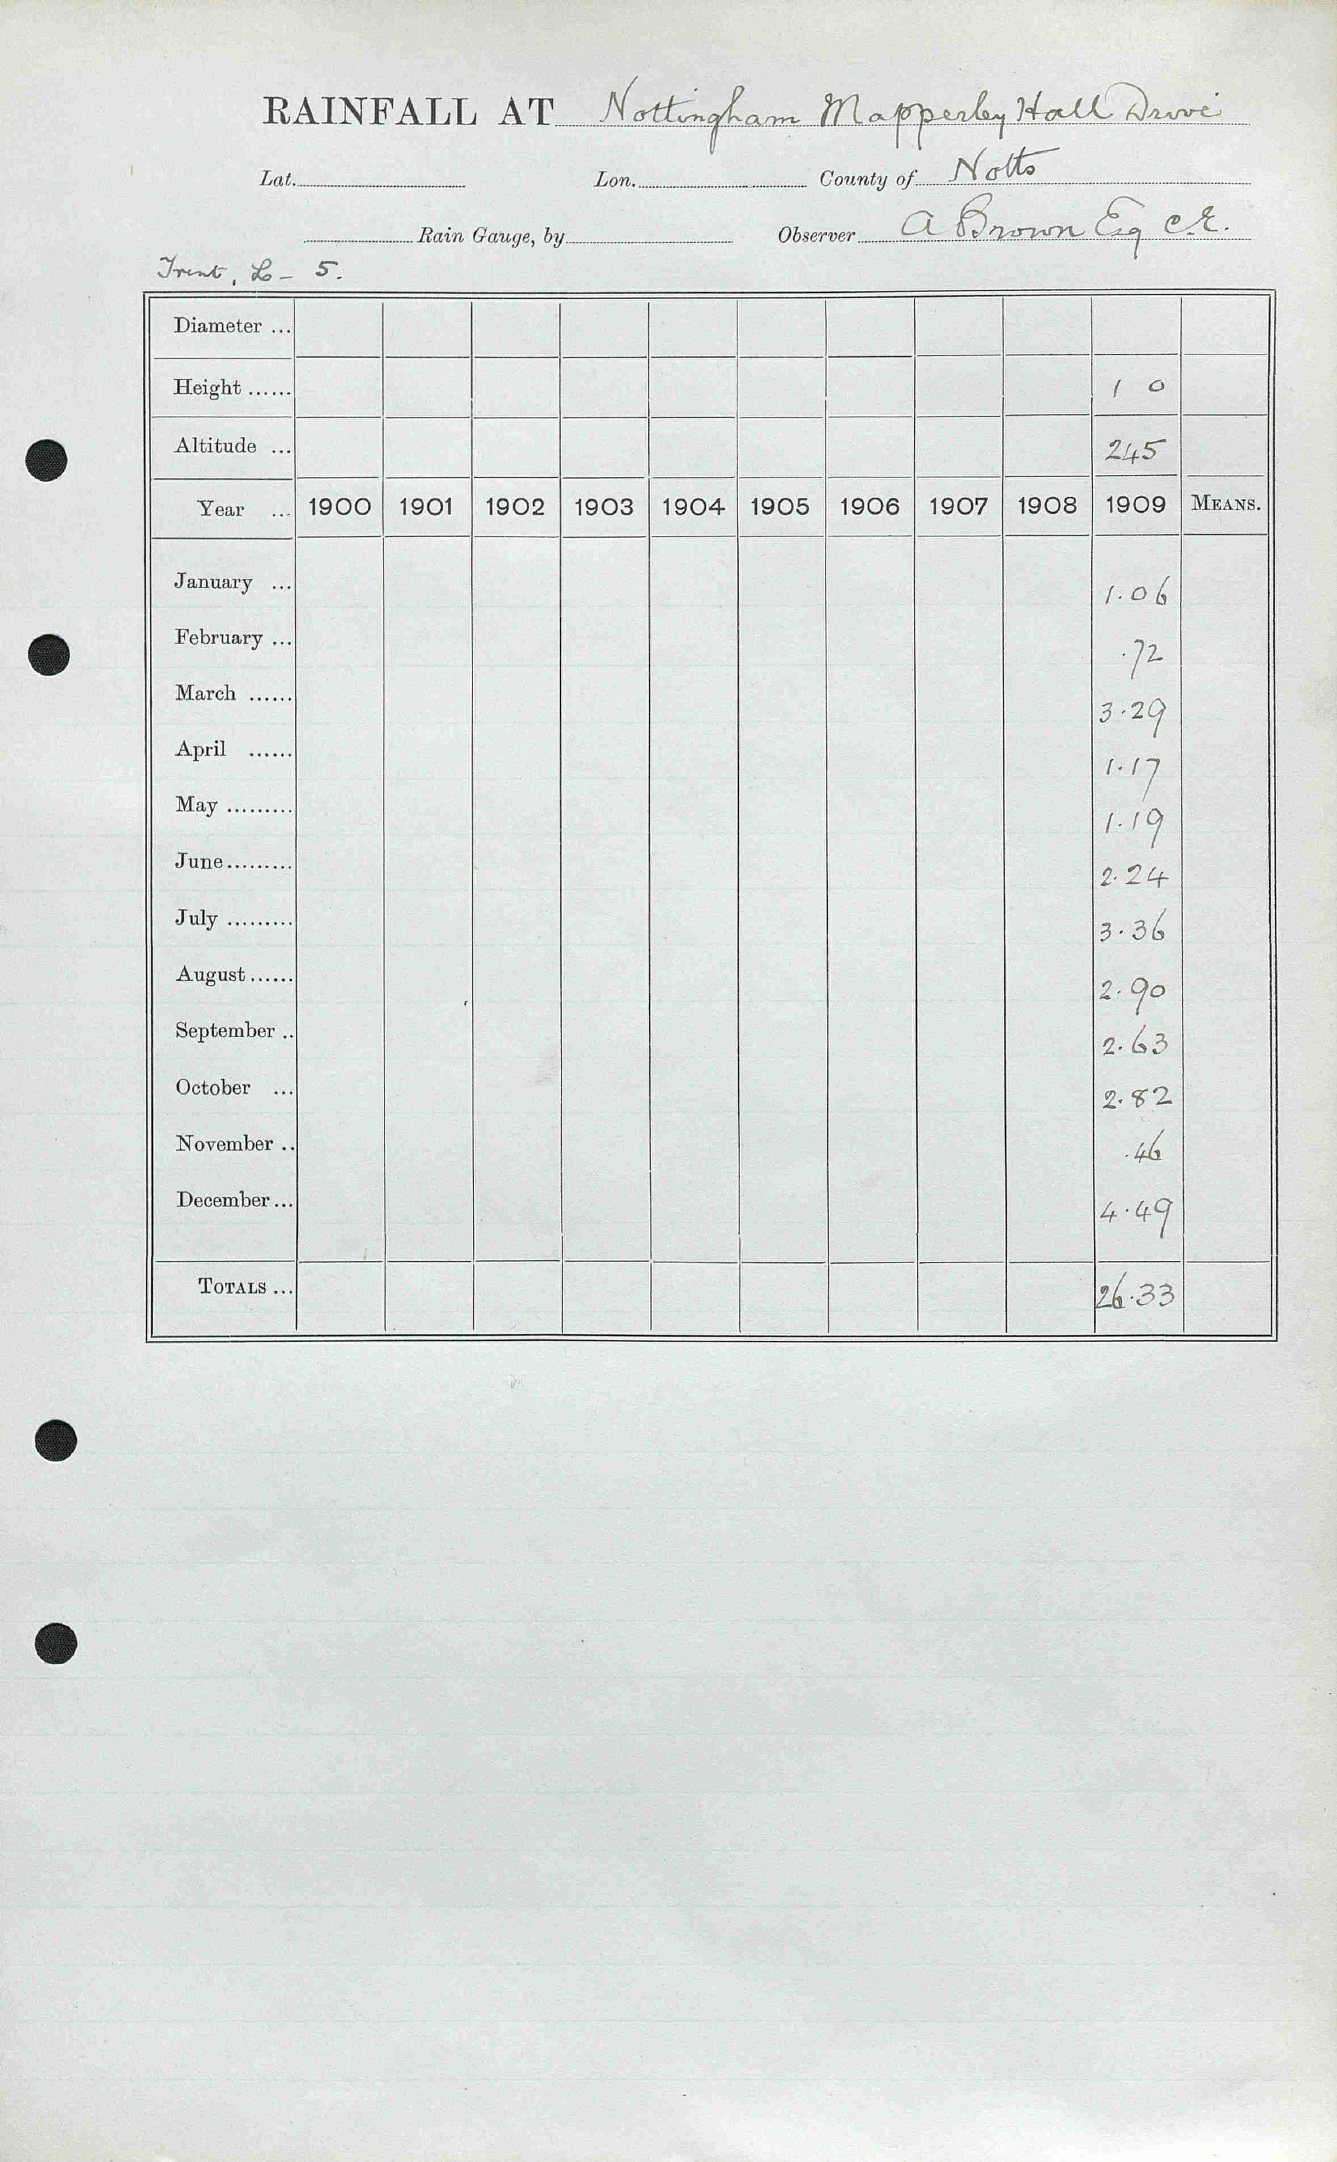 RAINFALL AT Nottingham Mapperley Hall Drive
Lat. Lon. County of Notts
Rain Gauge, by Observer A Brown Esq C.E.
Trent, L - 5.
Diameter ...
Height ...... 1 0
Altitude ... 245
Year ... 1900 1901 1902 1903 1904 1905 1906 1907 1908 1909 MEANS.
January ... 1.06
February ... .72
March ...... 3.29
April ...... 1.17
May ......... 1.19
June ......... 2.24
July ......... 3.36
August ...... 2.90
September .. 2.63
October ... 2.82
November .. .46
December ... 4.49
TOTALS ... 26.33